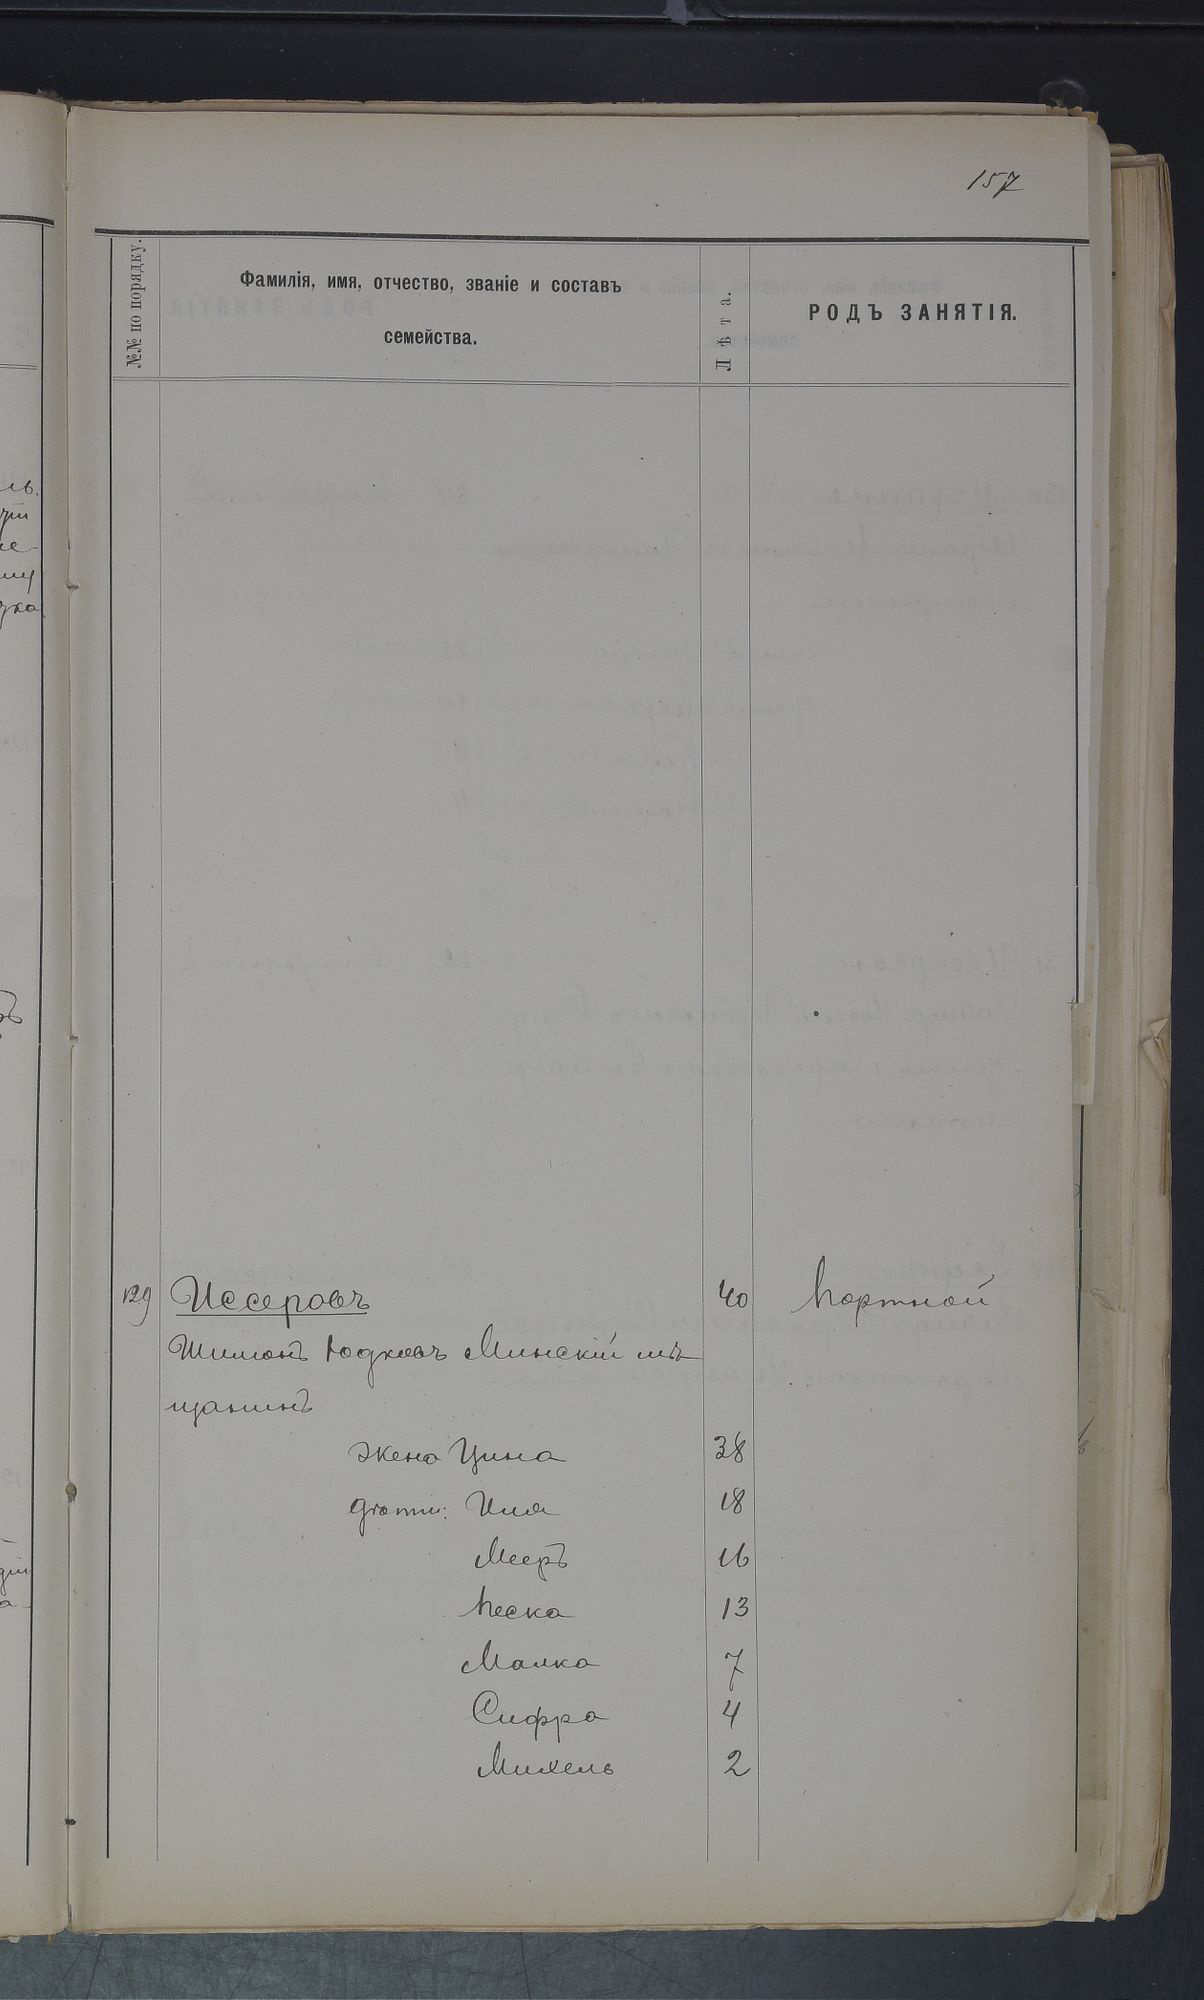 157
№№ по порядку.
Фамилія, имя, отчество, званіе и составъ
семейства.
Лѣта.
РОДЪ ЗАНЯТІЯ.
129 Иссеровъ 40 Портной
Шимонъ Юдковъ Минскій мѣ
щанинъ
жена Цина 38
дѣти: Иля 18
Мееръ 16
Песка 13
Малка 7
Сифра 4
Михель 2